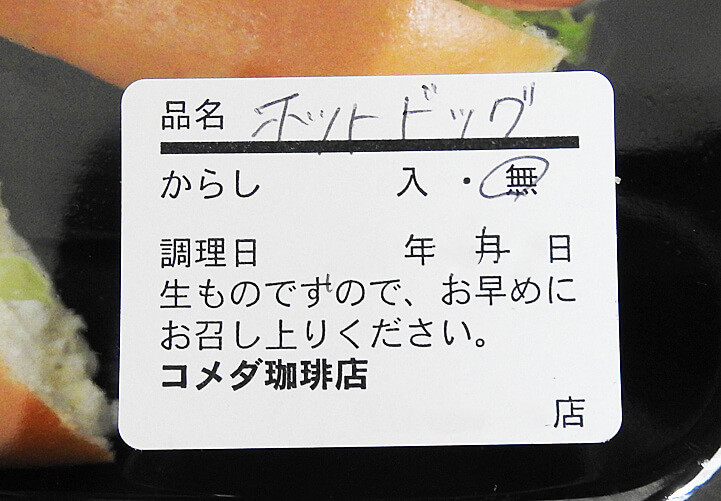 品名 ホットドッグ
からし 入・無
調理日 年 月 日
生ものですので、お早めに
お召し上りください。
コメダ珈琲店
店